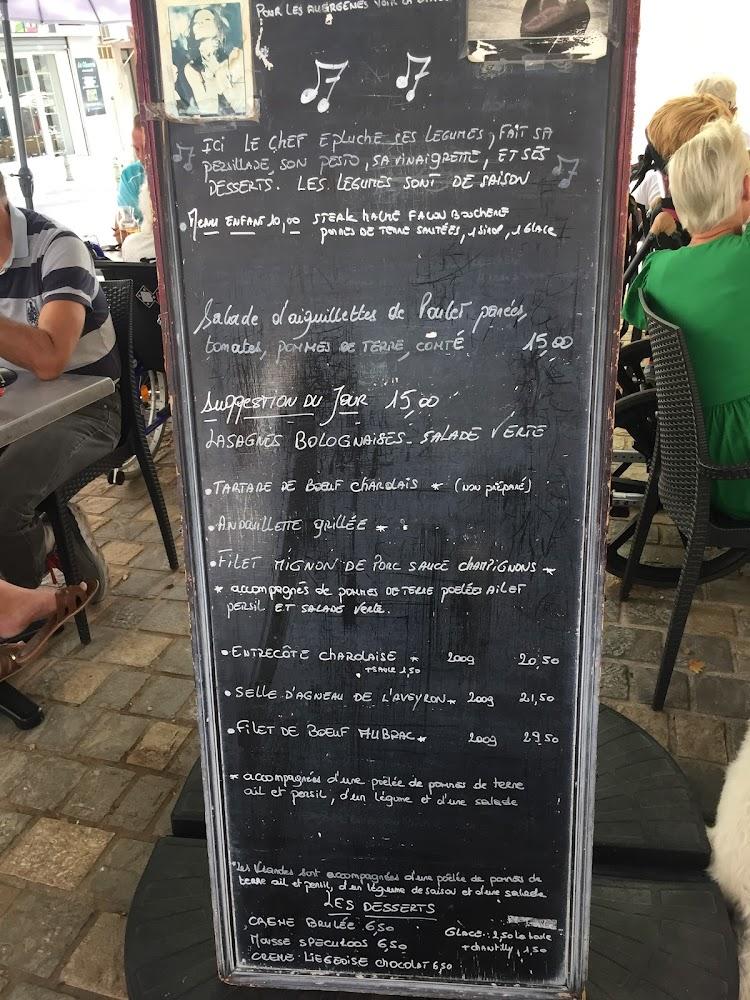 POUR LES ALLERGÈNES VOIR LA
ICI LE CHEF EPLUCHE SES LEGUMES, FAIT SA
PERSILLADE, SON PESTO, SA VINAIGRETTE, ET SES
DESSERTS. LES LEGUMES SONT DE SAISON
. MENU ENFANT 10,00 STEAK HACHÉ FACON BOUCHERE
POMMES DE TERRE SAUTÉES, 1 SIROP, 1 GLACE
Salade d'aiguillettes de Poulet panées,
tomates, POMMES DE TERRE, COMTÉ 15,00
SUGGESTION DU JOUR 15,00
LASAGNES BOLOGNAISES - SALADE VERTE
• TARTARE DE BŒUF CHAROLAIS * (non préparé)
• ANDOUILLETTE grillée *
• FILET MIGNON DE PORC SAUCE CHAMPIGNONS *
* accompagnés de pommes DE TERRE poêlées AIL ET
persil ET SALADE VERTE.
• ENTRECÔTE CHAROLAISE * 200g 20,50
• + SAUCE 1,50
• SELLE D'AGNEAU DE L'AVEYRON * 200g 21,50
• FILET DE BŒUF AUBRAC * 200g 29,50
* accompagnées d'une poêlée de pommes de terre
ail et persil, d'un légume et d'une salade
*Les Viandes sont accompagnées d'une poêlée de pommes de
terre ail et persil, d'un légume de saison et d'une salade
LES DESSERTS
CREME BRULÉE 6,50
GLACE: 2,50 La boule
MOUSSE SPECULOOS 6,50
+ chantilly, 1,50
• CREME LIEGEOISE CHOCOLAT 6,50